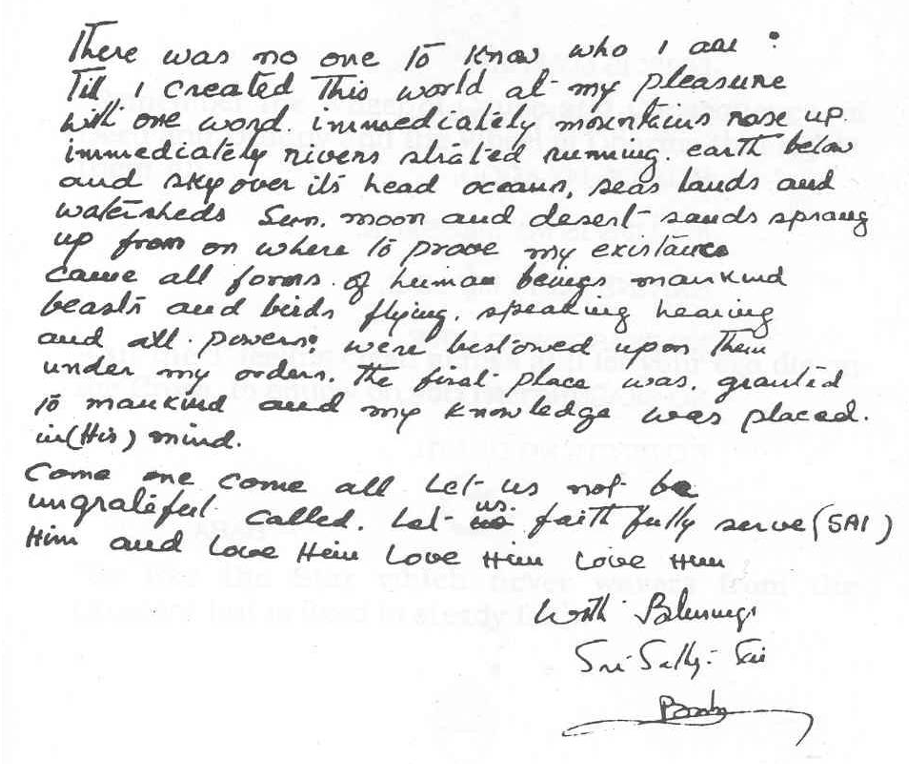 There was no one to know who I am :
Till I created this world at my pleasure
with one word immediately mountains rose up.
immediately rivers strated running. earth below
and sky over its head oceans, seas lands and
watersheds Sun, moon and desert sands sprang
up from on where to prove my existance
came all forms of human beings mankind
beasts and birds flying, speaking hearing
and all powers were bestowed upon them
under my orders. The first place was granted
to mankind and my knowledge was placed.
in (His) mind.
Come one come all let us not be
ungrateful called. Let us faithfully serve (SAI)
Him and Love Him Love Him Love Him
With Blessings
Sri Sathya Sai
Baba